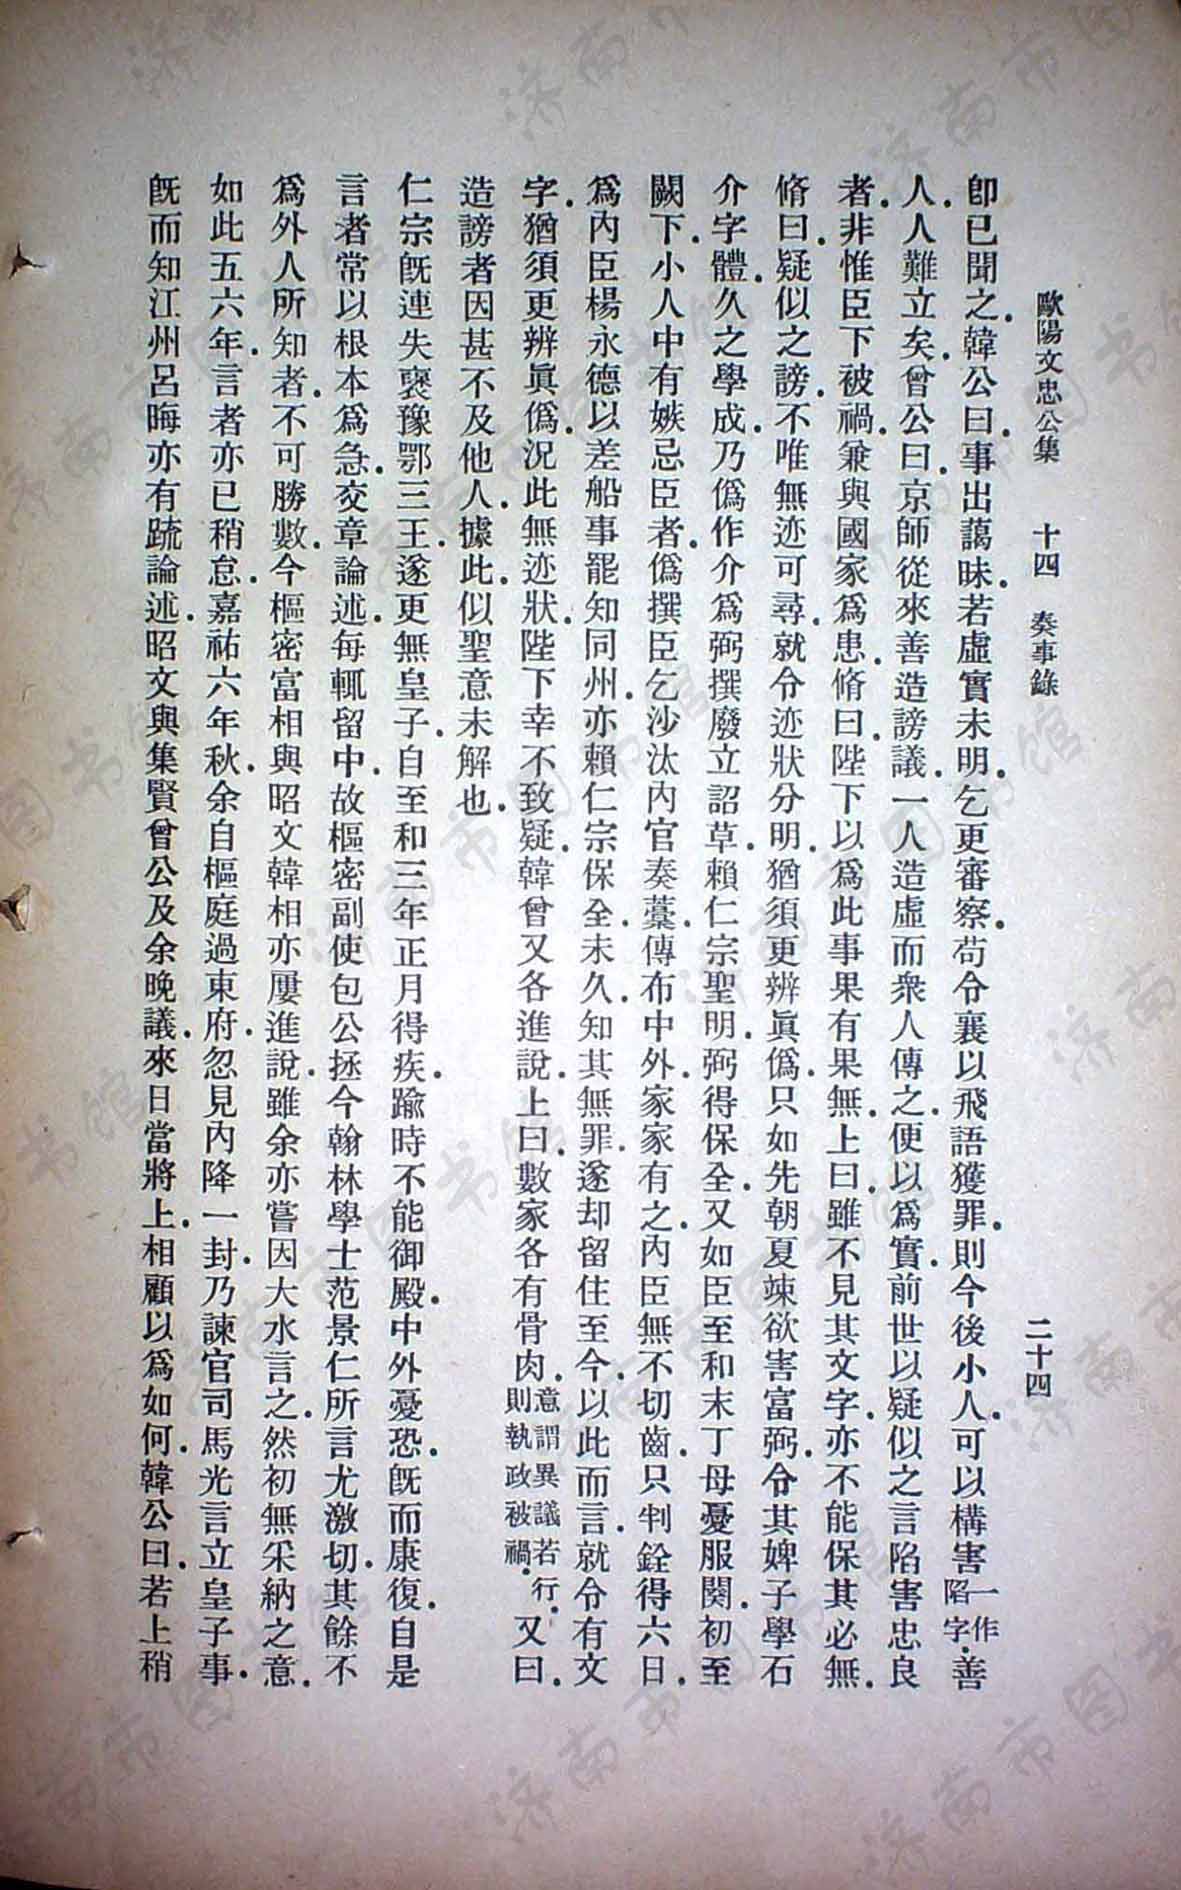 歐陽文忠公集　十四　奏事錄　二十四
卽已聞之.韓公曰.事出藹昧.若虛實未明.乞更審察.苟令襄以飛語獲罪.則今後小人.可以構害一作陷字.善
人.人人難立矣.曾公曰.京師從來善造謗議.一人造虛而衆人傳之.便以爲實.前世以疑似之言陷害忠良
者.非惟臣下被禍.兼與國家爲患.脩曰.陛下以爲此事果有果無.上曰.雖不見其文字.亦不能保其必無.
脩曰.疑似之謗.不唯無迹可尋.就令迹狀分明.猶須更辨眞僞.只如先朝夏竦欲害富弼.令其婢子學石
介字體.久之學成.乃僞作介爲弼撰廢立詔草.賴仁宗聖明.弼得保全.又如臣至和末丁母憂服闋.初至
闕下.小人中有嫉忌臣者.僞撰臣乞沙汰內官奏藁.傳布中外.家家有之.內臣無不切齒.只判銓得六日.
爲內臣楊永德以差船事罷知同州.亦賴仁宗保全.未久.知其無罪.遂却留住至今.以此而言.就令有文
字.猶須更辨眞僞.況此無迹狀.陛下幸不致疑.韓曾又各進說.上曰.數家各有骨肉.意謂異議若行.則執政被禍.又曰.
造謗者因甚不及他人.據此.似聖意未解也.
仁宗旣連失襃豫鄂三王.遂更無皇子.自至和三年正月得疾.踰時不能御殿.中外憂恐.旣而康復.自是
言者常以根本爲急.交章論述.每輒留中.故樞密副使包公拯今翰林學士范景仁所言尤激切.其餘不
爲外人所知者.不可勝數.今樞密富相與昭文韓相亦屢進說.雖余亦嘗因大水言之.然初無采納之意.
如此五六年.言者亦已稍怠.嘉祐六年秋.余自樞庭過東府.忽見內降一封.乃諫官司馬光言立皇子事.
旣而知江州呂晦亦有疏論述.昭文與集賢曾公及余晚議.來日當將上.相顧以爲如何.韓公曰.若上稍